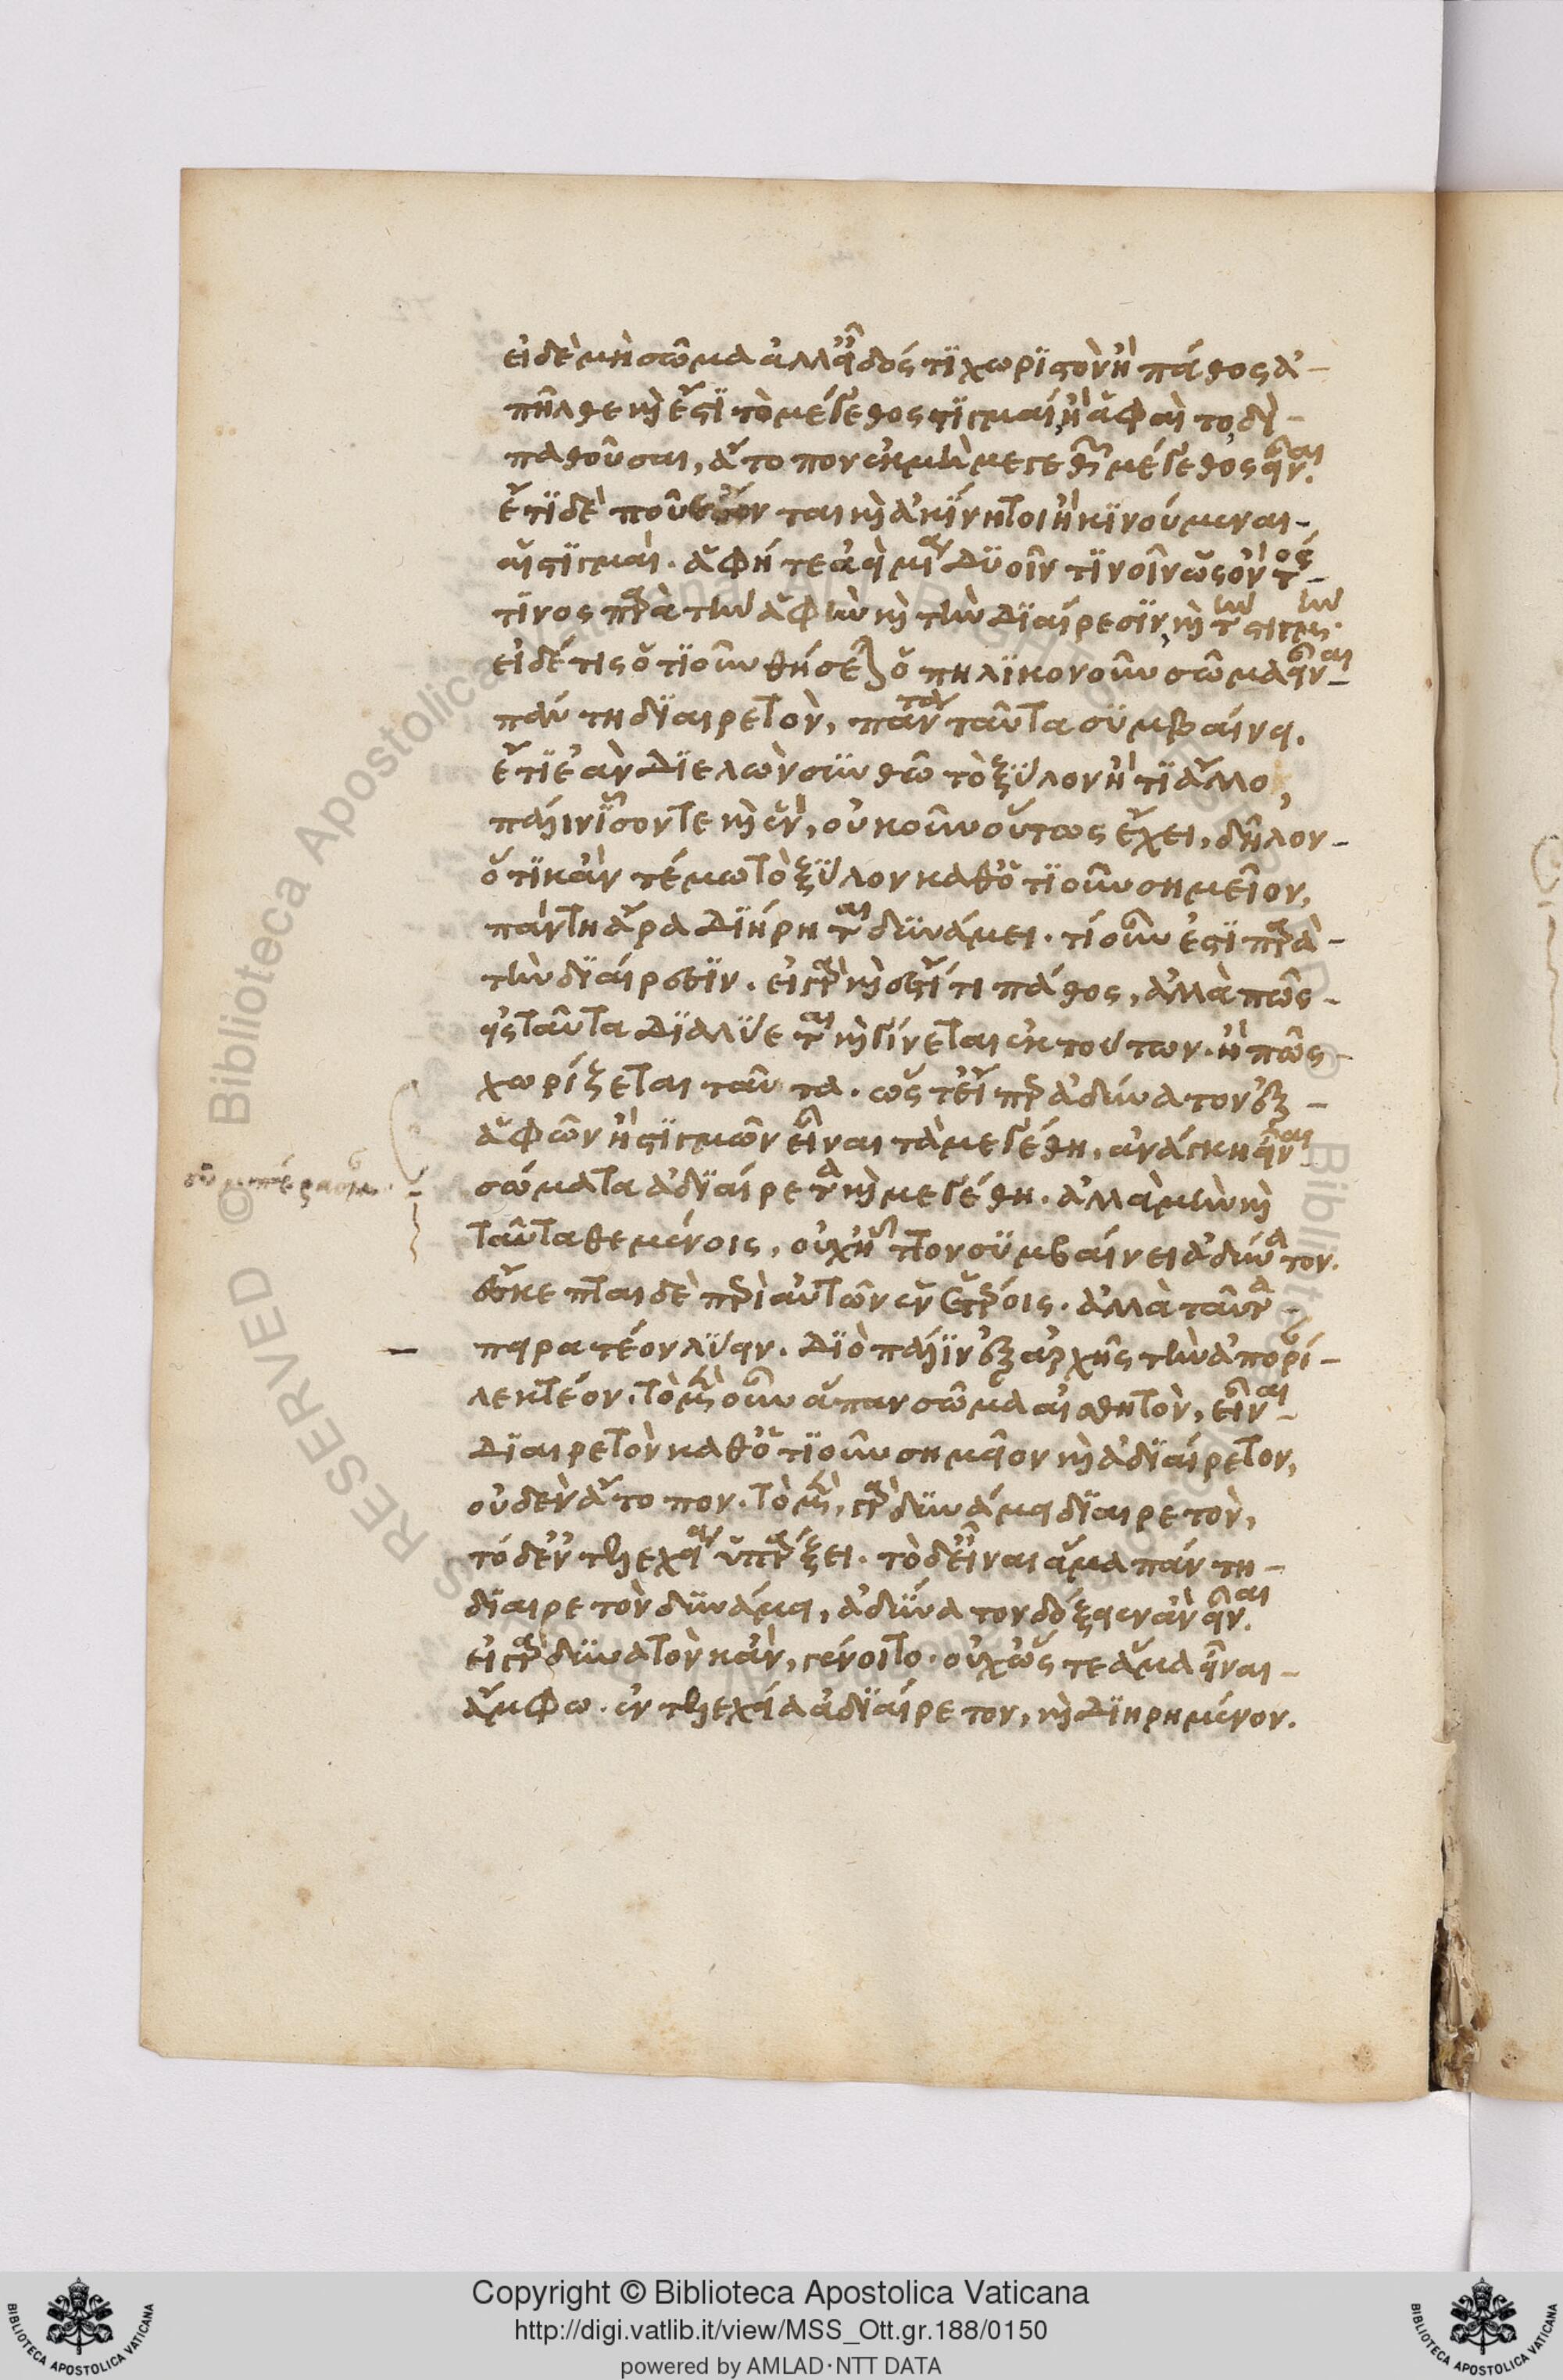 εἰ δὲ μὴ σῶμα ἀλλ' εἶδός τι χωριστὸν ἢ πάθος ἀ-
πῆλθε καὶ ἔστι τὸ μέγεθος στιγμαὶ ἢ ἁφαὶ τοδὶ
παθοῦσαι, ἄτοπον ἐκ μὴ μεγεθῶν μέγεθος εἶναι.
ἔτι δὲ ποῦ ἔσονται καὶ ἀκίνητοι ἢ κινούμεναι
αἱ στιγμαί. ἁφή τε ἀεὶ μία δυοῖν τινοῖν ὡς ὄντος
τινὸς παρὰ τὴν ἁφὴν καὶ τὴν διαίρεσιν καὶ τὴν στιγμήν.
εἰ δέ τις ὁτιοῦν θήσεται ὁπηλικονοῦν σῶμα εἶναι
πάντη διαιρετὸν, πάντα ταῦτα συμβαίνει.
ἔτι ἐὰν διελὼν συνθῶ τὸ ξύλον ἢ τι ἄλλο,
πάλιν ἴσον τε καὶ ἕν, οὐκοῦν οὕτως ἔχει, δῆλον
ὅτι κἂν τέμω τὸ ξύλον καθ' ὁτιοῦν σημεῖον,
πάντη ἄρα διήρηται δυνάμει. τί οὖν ἔστι παρὰ
τὴν διαίρεσιν. εἰ γὰρ καὶ ἔστι τι πάθος, ἀλλὰ πῶς
εἰς ταῦτα διαλύεται καὶ γίνεται ἐκ τούτων. ἢ πῶς
χωρίζεται ταῦτα. ὥστ' εἴπερ ἀδύνατον ἐξ
ἁφῶν ἢ στιγμῶν εἶναι τὰ μεγέθη, ἀνάγκη εἶναι
σώματα ἀδιαίρετα καὶ μεγέθη. ἀλλὰ μὴν καὶ
ταῦτα θεμένοις, οὐχ ἧττον συμβαίνει ἀδύνατον.
ἔσκεπται δὲ περὶ αὐτῶν ἐν ἑτέροις. ἀλλὰ ταῦτα
πειρατέον λύειν. διὸ πάλιν ἐξ ἀρχῆς τὴν ἀπορίαν
λεκτέον. τὸ μὲν οὖν ἅπαν σῶμα αἰσθητὸν, εἶναι
διαιρετὸν καθ' ὁτιοῦν σημεῖον καὶ ἀδιαίρετον,
οὐδὲν ἄτοπον. τὸ μὲν, γὰρ δυνάμει διαιρετὸν,
τὸ δ' ἐντελεχείᾳ ὑπάρξει. τὸ δ' εἶναι ἅμα πάντη
διαιρετὸν δυνάμει, ἀδύνατον δόξειεν ἂν εἶναι.
εἰ γὰρ δυνατὸν κἂν, γένοιτο. οὐχ ὥστε ἅμα εἶναι
ἄμφω. ἐντελεχείᾳ ἀδιαίρετον, καὶ διηρημένον.
συμπέρασμα
Copyright © Biblioteca Apostolica Vaticana
http://digi.vatlib.it/view/MSS_Ott.gr.188/0150
powered by AMLAD·NTT DATA
BIBLIOTECA APOSTOLICA VATICANA
BIBLIOTECA APOSTOLICA VATICANA